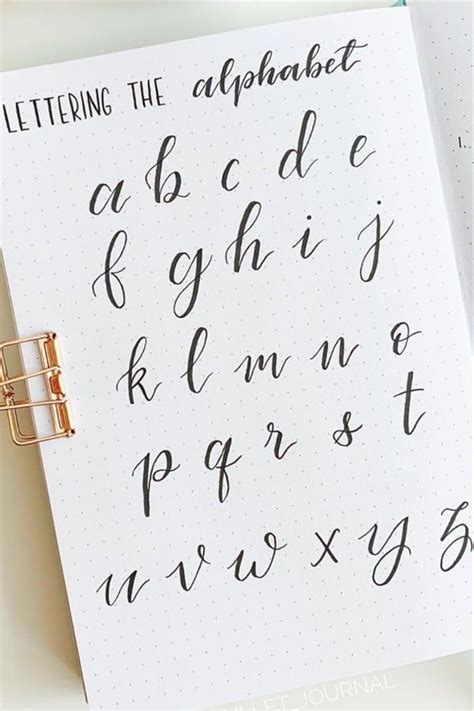 LETTERING THE alphabet
a b c d e
f g h i j
k l m n o
p q r s t
u v w x y z
1.